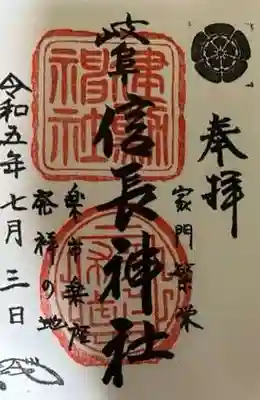 奉拝
家門繁栄
岐阜信長神社
建勲神社
楽市楽座
発祥の地
令和五年七月三日